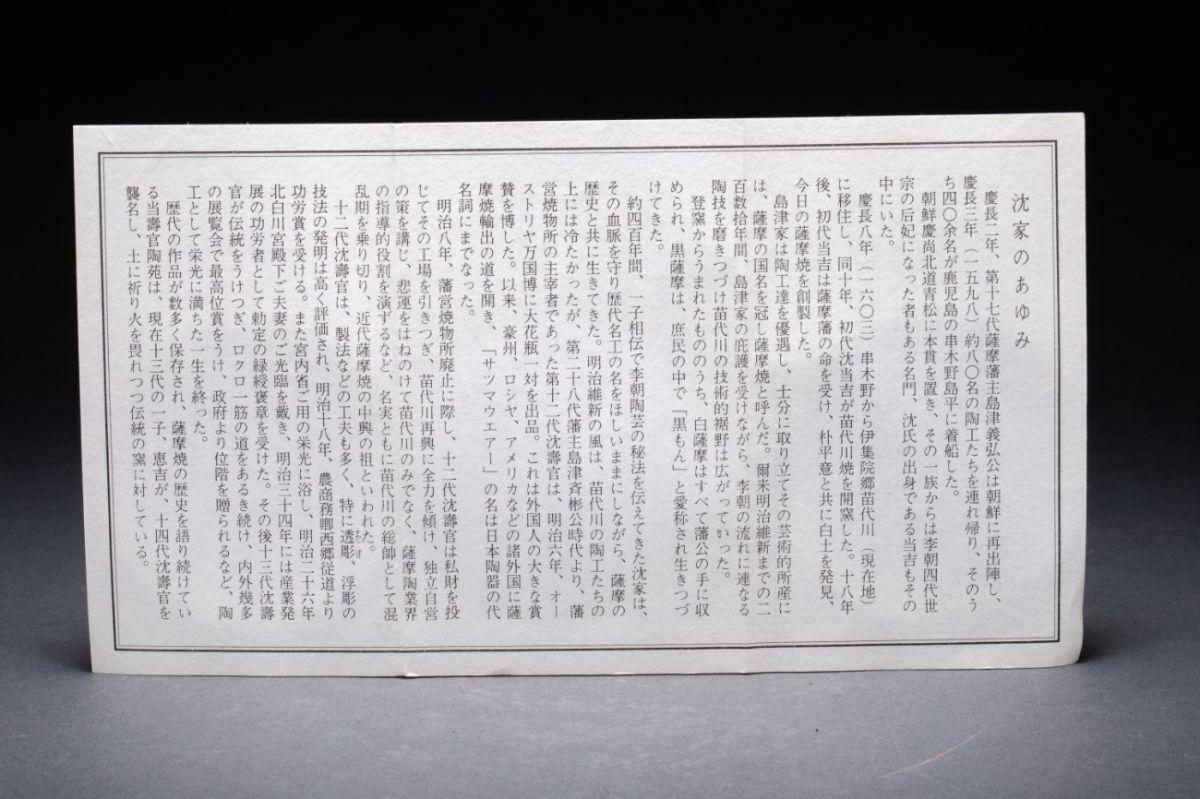 沈家のあゆみ
慶長二年、第十七代薩摩藩主島津義弘公は朝鮮に再出陣し、
慶長三年(一五九八)約八〇名の陶工たちを連れ帰り、そのう
ち四〇余名が鹿児島の串木野島平に着船した。
朝鮮慶尚北道青松に本貫を置き、その一族からは李朝四代世
宗の后妃になった者もある名門、沈氏の出身である当吉もその
中にいた。
慶長八年(一六〇三)串木野から伊集院郷苗代川(現在地)
に移住し、同十年、初代沈当吉が苗代川焼を開窯した。十八年
後、初代当吉は薩摩藩の命を受け、朴平意と共に白土を発見、
今日の薩摩焼を創製した。
島津家は陶工達を優遇し、士分に取り立てその芸術的所産に
は、薩摩の国名を冠し薩摩焼と呼んだ。爾来明治維新までの二
百数拾年間、島津家の庇護を受けながら、李朝の流れに連なる
陶技を磨きつづけ苗代川の技術的裾野は広がっていった。
登窯からうまれたもののうち、白薩摩はすべて藩公の手に収
められ、黒薩摩は、庶民の中で「黒もん」と愛称され生きつづ
けてきた。
約四百年間、一子相伝で李朝陶芸の秘法を伝えてきた沈家は、
その血脈を守り歴代名工の名をほしいままにしながら、薩摩の
歴史と共に生きてきた。明治維新の風は、苗代川の陶工たちの
上には冷たかったが、第二十八代藩主島津斉彬公時代より、藩
営焼物所の主宰者であった第十二代沈壽官は、明治六年、オー
ストリヤ万国博に大花瓶一対を出品。これは外国人の大きな賞
賛を博した。以来、豪州、ロシヤ、アメリカなどの諸外国に薩
摩焼輸出の道を開き、「サツマウエアー」の名は日本陶器の代
名詞にまでなった。
明治八年、藩営焼物所廃止に際し、十二代沈壽官は私財を投
じてその工場を引きつぎ、苗代川再興に全力を傾け、独立自営
の策を講じ、悲運をはねのけて苗代川のみでなく、薩摩陶業界
の指導的役割を演ずるなど、名実ともに苗代川の総帥として混
乱期を乗り切り、近代薩摩焼の中興の祖といわれた。
十二代沈壽官は、製法などの工夫も多く、特に透彫、浮彫の
技法の発明は高く評価され、明治十八年、農商務卿西郷従道より
功労賞を受ける。また宮内省ご用の栄光に浴し、明治二十六年
北白川宮殿下ご夫妻のご光臨を戴き、明治三十四年には産業発
展の功労者として勅定の緑綬褒章を受けた。その後十三代沈壽
官が伝統をうけつぎ、ロクロ一筋の道をあるき続け、内外幾多
の展覧会で最高位賞をうけ、政府より位階を贈られるなど、陶
工として栄光に満ちた一生を終った。
歴代の作品が数多く保存され、薩摩焼の歴史を語り続けてい
る当壽官陶苑は、現在十三代の一子、恵吉が、十四代沈壽官を
襲名し、土に祈り火を畏れつつ伝統の窯に対している。